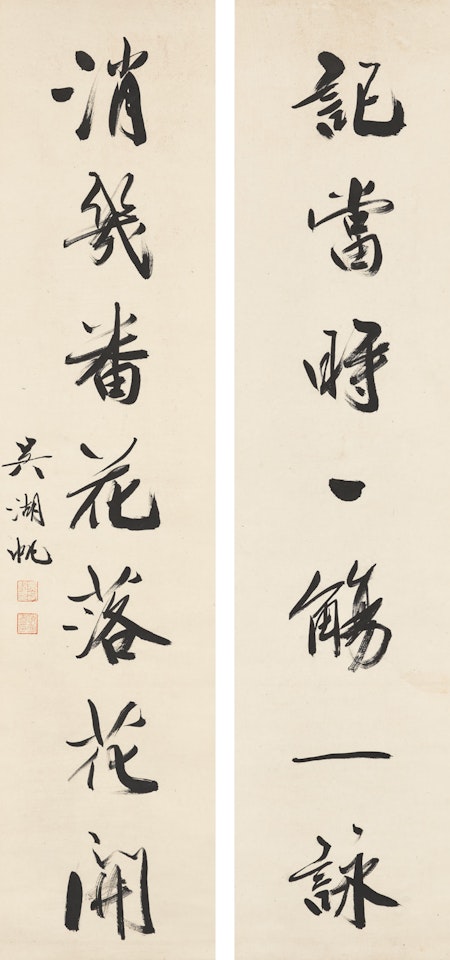 記當時一觴一詠
消幾番花落花開
吳湖帆